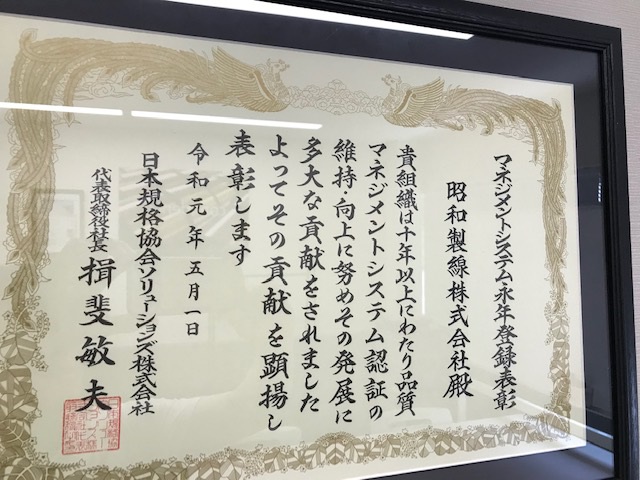 マネジメントシステム永年登録表彰
昭和製線株式会社殿
貴組織は十年以上にわたり品質
マネジメントシステム認証の
維持・向上に努めその発展に
多大な貢献をされました
よってその貢献を顕揚し
表彰します
令和元年五月一日
日本規格協会ソリューションズ株式会社
代表取締役社長 揖斐敏夫